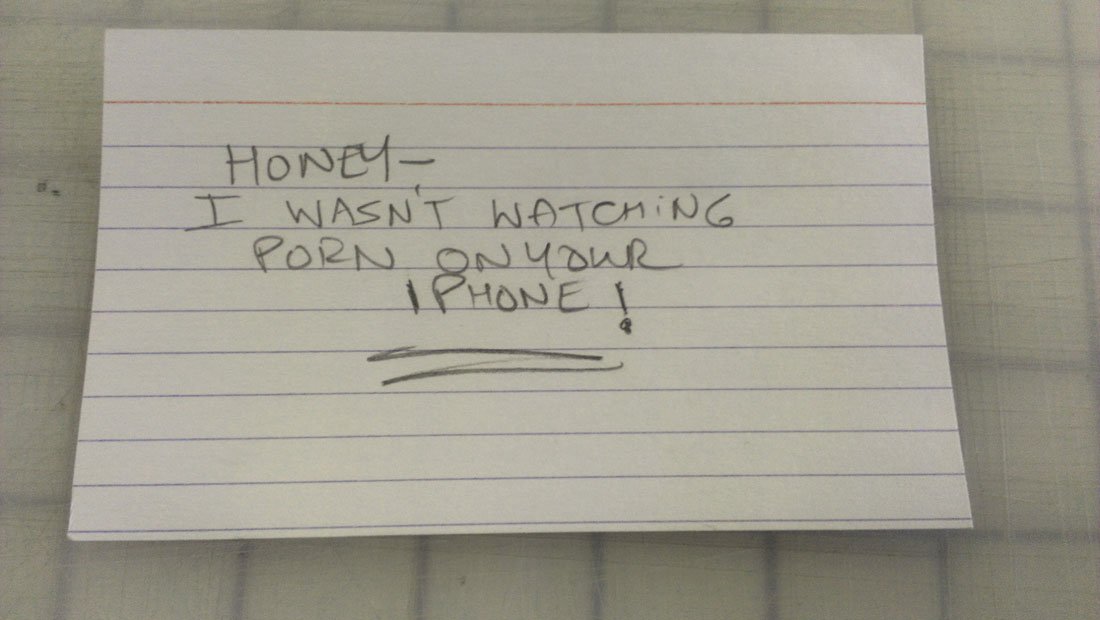 HONEY—
I WASN'T WATCHING
PORN ON YOUR
IPHONE!